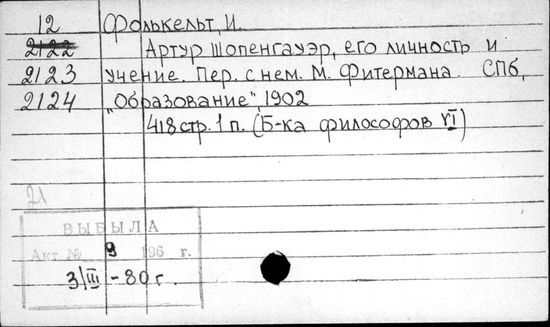 12 Фолькельт, И.
2122 Артур Шопенгауэр, его личность и
2123 учение. Пер. с нем. М. Фитермана. СПб,
2124 „Образование", 1902
418 стр. 1 п. (Б-ка философов VI)
21
ВЫБЫЛА
Акт № 9 196 г.
3/III - 80 г.